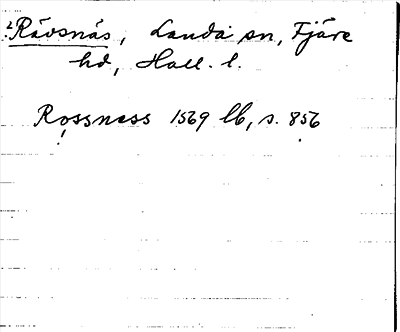 2 Rävsnäs, Landa sn, Fjäre
hd, Hall. l.
Rossness 1569 lb, s. 856
!